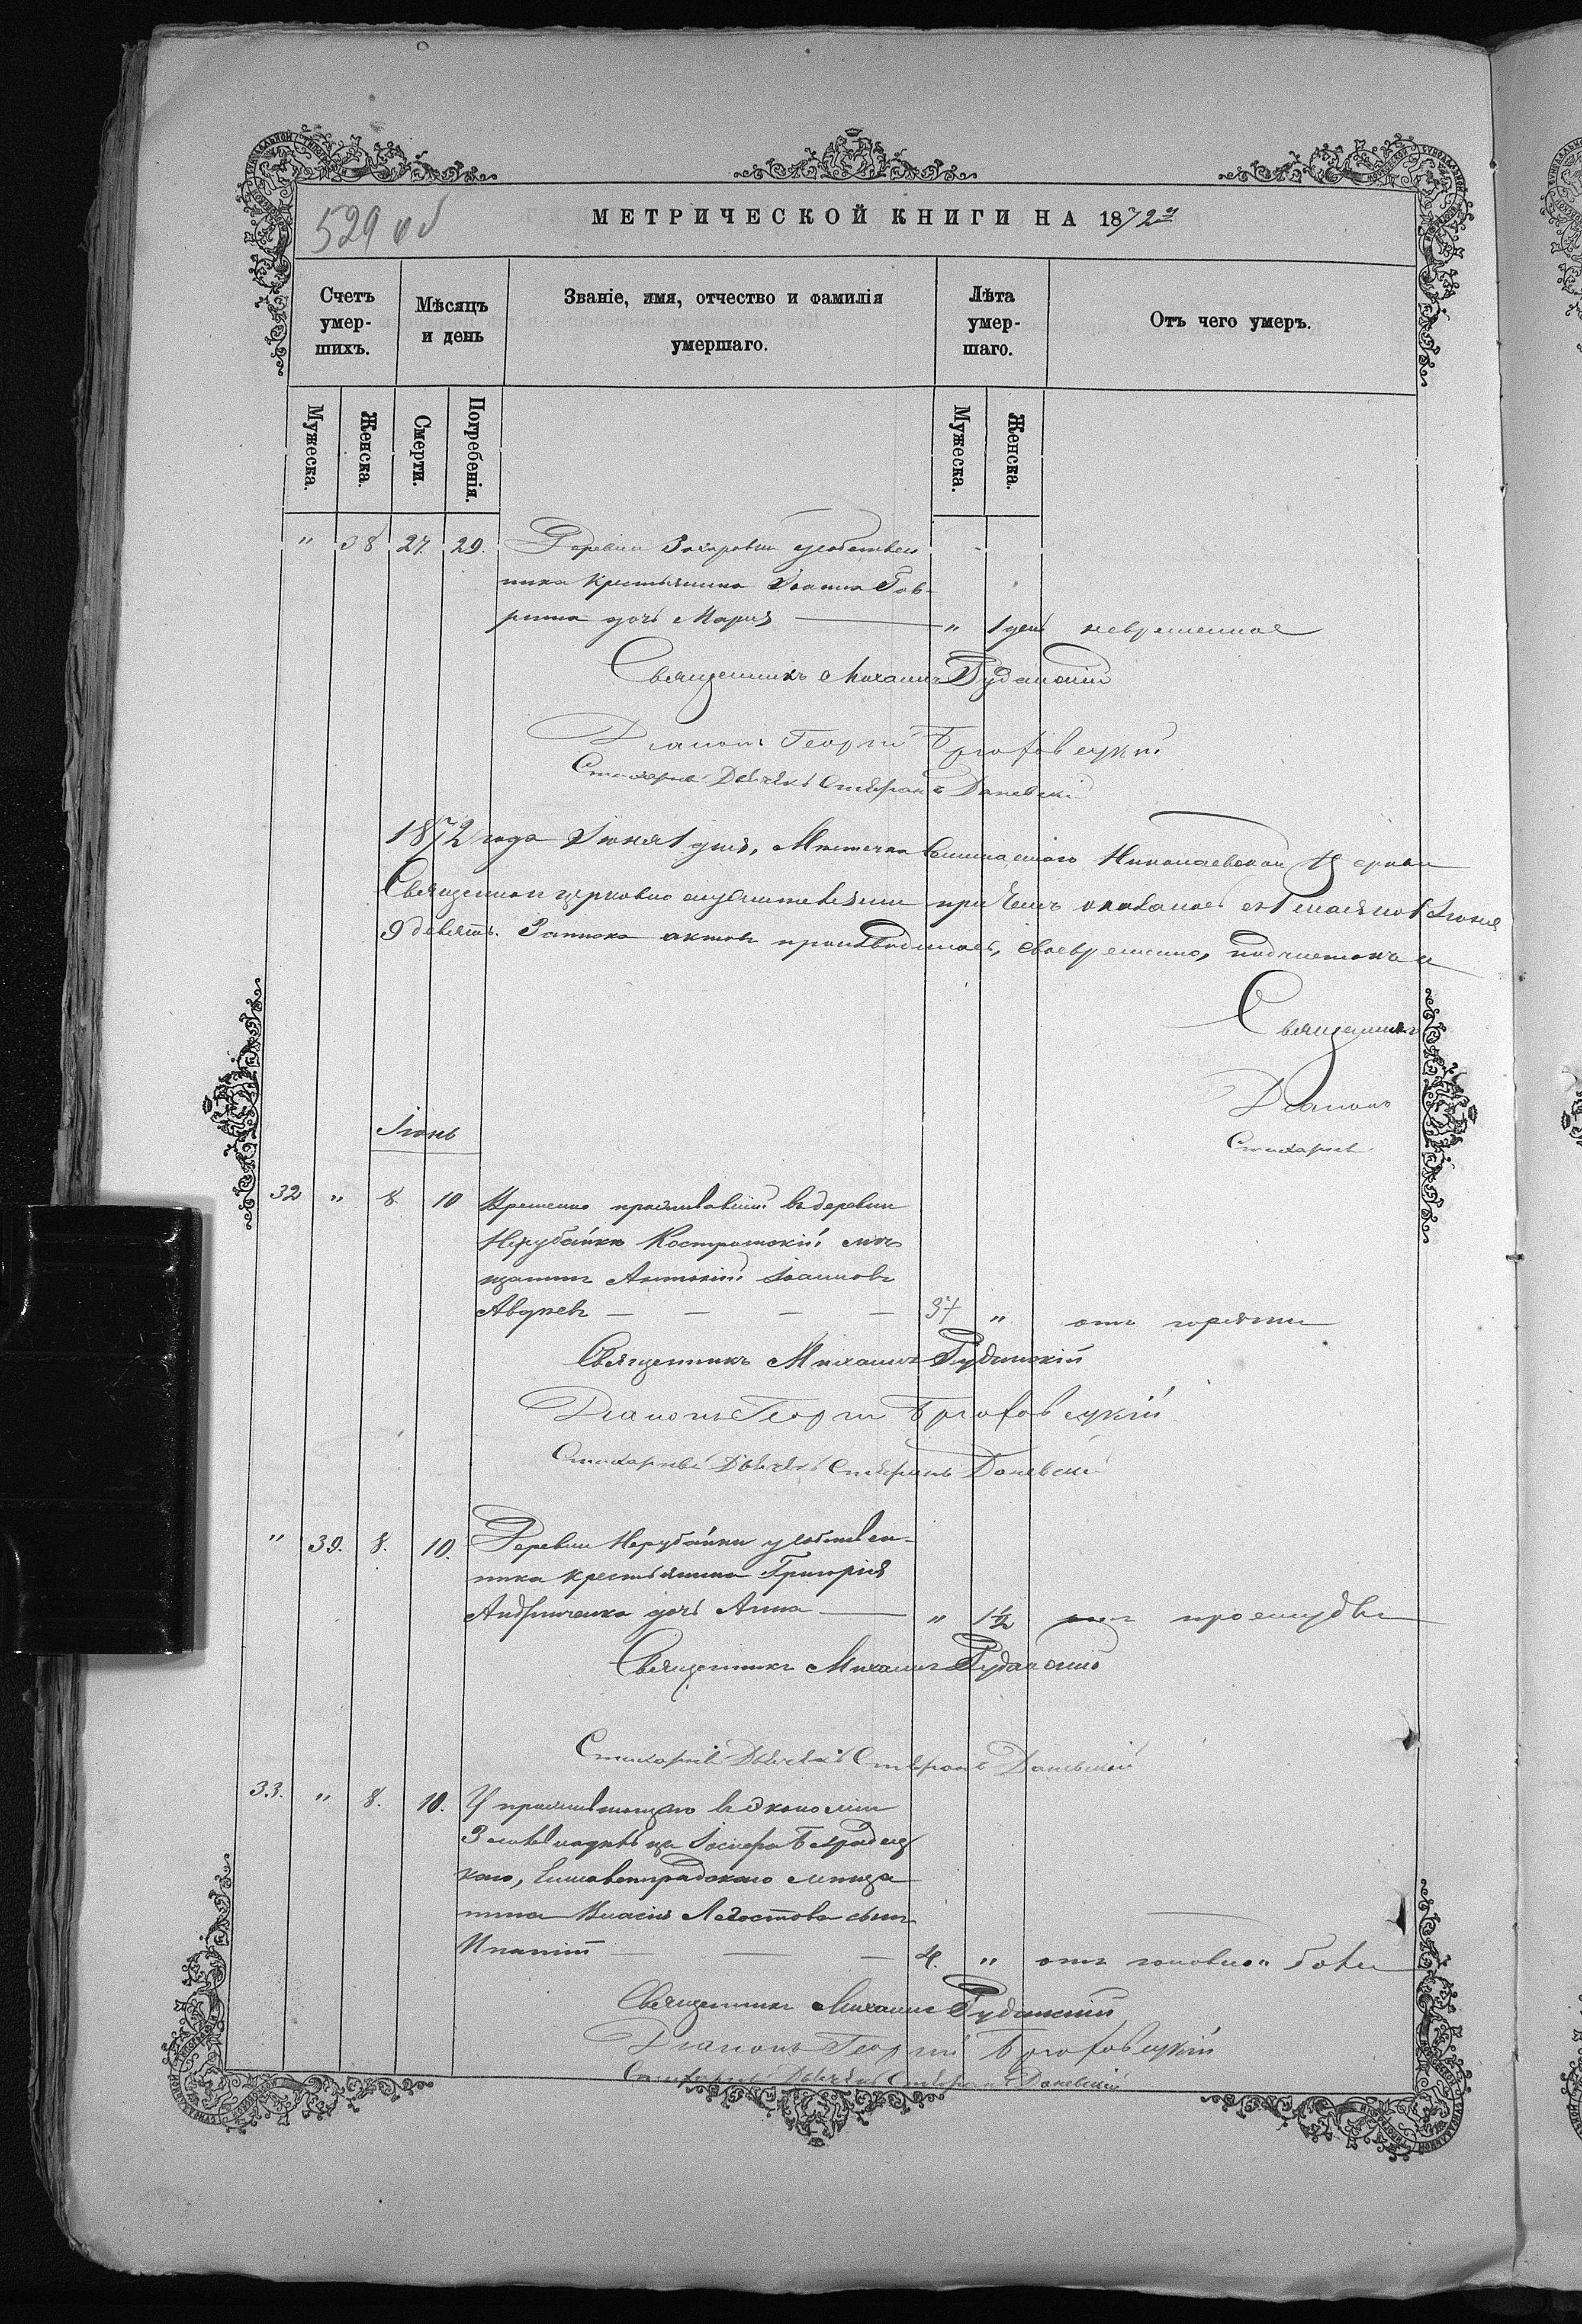 529 об
МЕТРИЧЕСКОЙ КНИГИ НА 1872й
Счетъ умер-шихъ.
Мѣсяцъ и день
Званіе, имя, отчество и фамилія умершаго.
Лѣта умер-шаго.
Отъ чего умеръ.
Мужеска.
Женска.
Смерти.
Погребенія.
Мужеска.
Женска.
" 38 27. 29. Деревни Захаровки усобствен
ника крестьянина Іоанна Гав-
дочь Марія — " 1 день
Священникъ Михаилъ Гудзинскій
Діаконъ Георгій Брюховецкій
Стихарный Дьячекъ Стефанъ Даневскій
1872 года Іюня 1 дня, Николаевской Церкви
Священно и церковно
9 девять. Записка актовъ производилась, своевременно,
Священникъ
Діаконъ
Стихарный
Іюнь
32 " 8. 10 Временно проживавшій въ деревни
Нерубайки Костромскій мѣ
щанинъ Антоній Іоанновъ
— — — — 37 " отъ горячки
Священникъ Михаилъ Гудзинскій
Діаконъ Георгій Брюховецкій
Стихарный Дьячекъ Стефанъ Даневскій
" 39. 8. 10. Деревни Нерубайки усобствен-
ника крестьянина Григорія
Андрійченка дочь Анна — " 1½ отъ простуды
Священникъ Михаилъ Гудзинскій
Стихарный Дьячекъ Стефанъ Даневскій
33. " 8. 10. У проживающаго въ экономіи
Іосифа
каго, Елисаветградскаго мѣща
нина сынъ
— — — 4. " отъ головной боли
Священникъ Михаилъ Гудзинскій
Діаконъ Георгій Брюховецкій
Стихарный Дьячекъ Стефанъ Даневскій